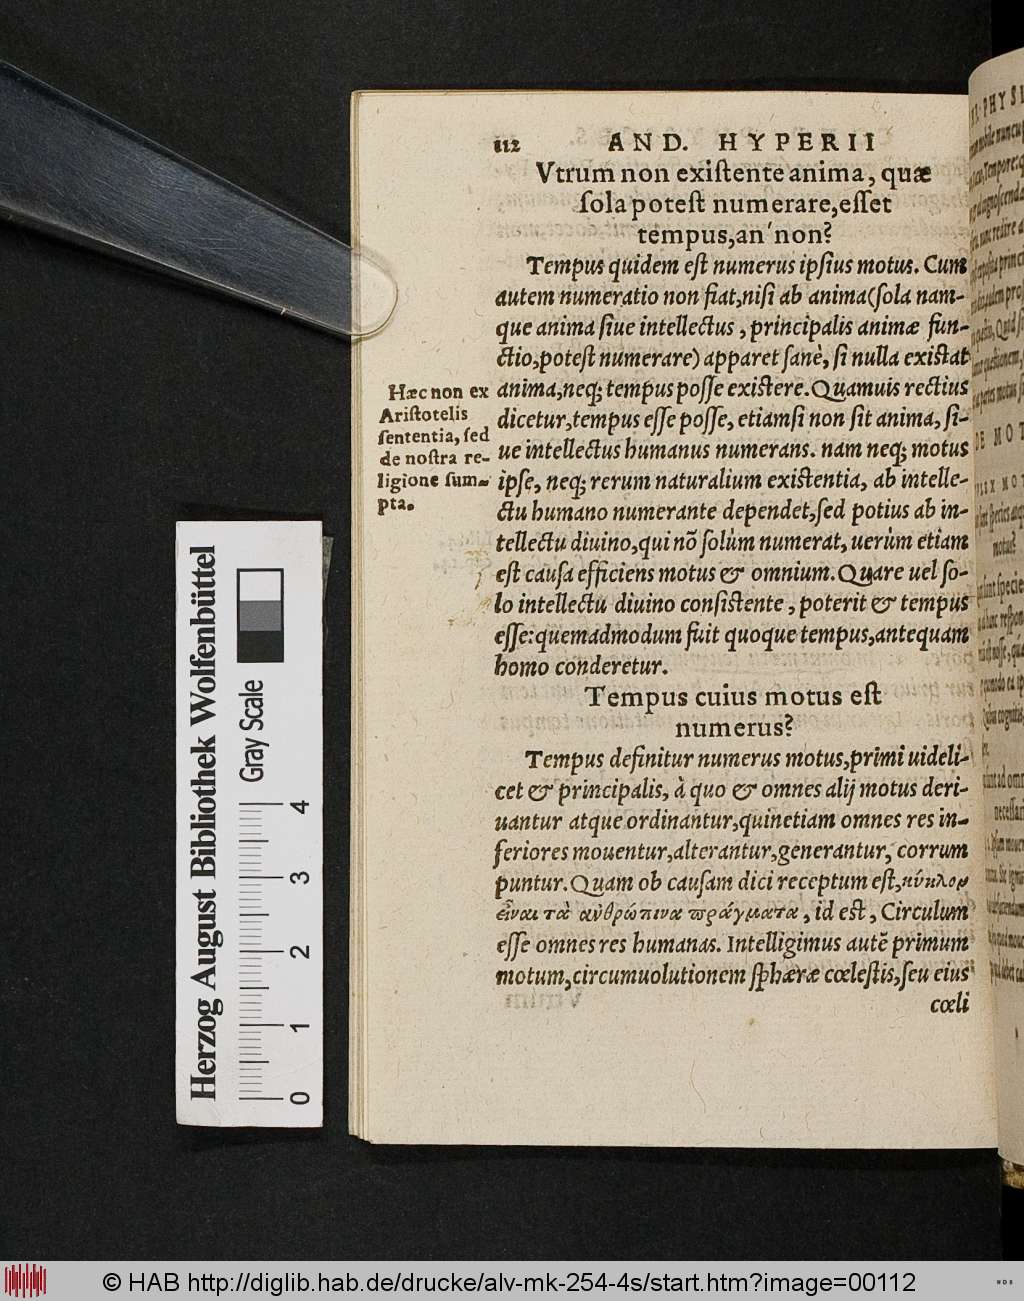 112 AND. HYPERII
Vtrum non exiſtente anima, quæ
ſola poteſt numerare, eſſet
tempus, an non?
Tempus quidem eſt numerus ipſius motus. Cum
autem numeratio non fiat, niſi ab anima (ſola nam-
que anima ſiue intellectus, principalis animæ fun-
ctio, poteſt numerare) apparet ſanè, ſi nulla exiſtat
anima, neq; tempus poſſe exiſtere. Quamuis rectius
dicetur, tempus eſſe poſſe, etiamſi non ſit anima, ſi-
ue intellectus humanus numerans. nam neq; motus
ipſe, neq; rerum naturalium exiſtentia, ab intelle-
ctu humano numerante dependet, ſed potius ab in-
tellectu diuino, qui nõ ſolùm numerat, uerùm etiam
eſt cauſa efficiens motus & omnium. Quare uel ſo-
lo intellectu diuino conſiſtente, poterit & tempus
eſſe: quemadmodum fuit quoque tempus, antequam
homo conderetur.
Hæc non ex
Ariſtotelis
ſententia, ſed
de noſtra re-
ligione ſum-
pta.
Tempus cuius motus eſt
numerus?
Tempus definitur numerus motus, primi uideli-
cet & principalis, à quo & omnes alij motus deri-
uantur atque ordinantur, quinetiam omnes res in-
feriores mouentur, alterantur, generantur, corrum
puntur. Quam ob cauſam dici receptum eſt, κύκλον
εἶναι τὰ ἀνθρώπινα πράγματα, id eſt, Circulum
eſſe omnes res humanas. Intelligimus autē primum
motum, circumuolutionem ſphæræ cœleſtis, ſeu eius
cœli
Herzog August Bibliothek Wolfenbüttel
Gray Scale
0 1 2 3 4
© HAB http://diglib.hab.de/drucke/alv-mk-254-4s/start.htm?image=00112